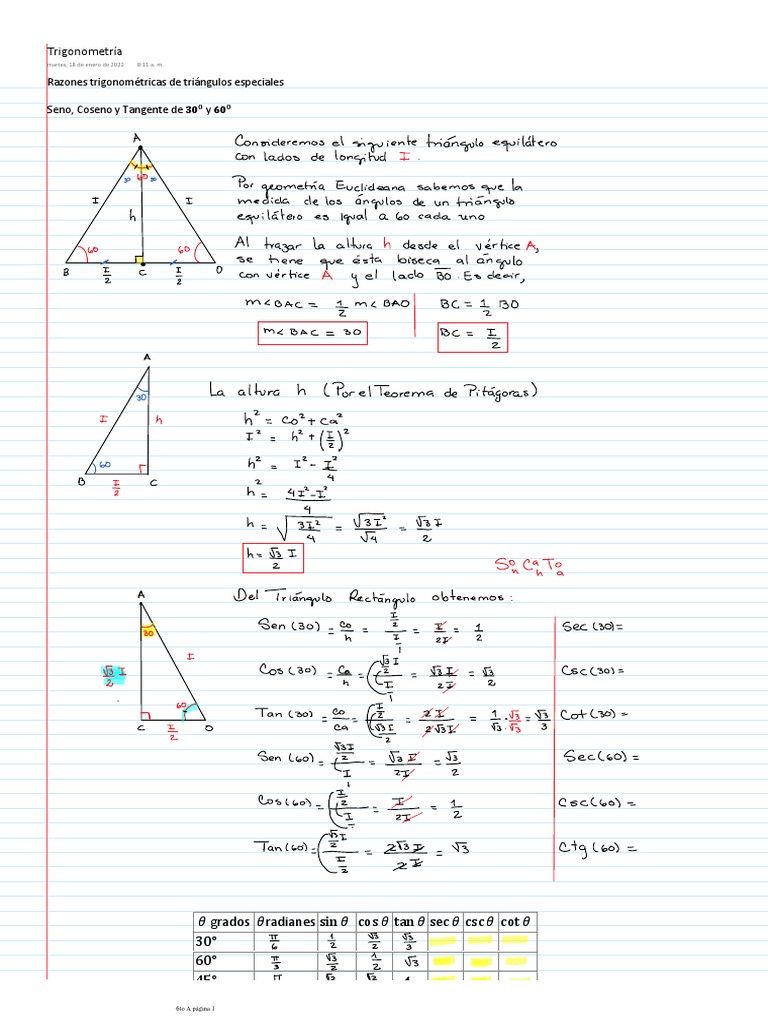 Trigonometría
martes, 18 de enero de 2022 8:11 a. m.
Razones trigonométricas de triángulos especiales
Seno, Coseno y Tangente de 30⁰ y 60⁰
A
30 60 30
I
h
I
60
60
B
I/2
C
I/2
D
Consideremos el siguiente triángulo equilátero
con lados de longitud I.
Por geometría Euclideana sabemos que la
medida de los ángulos de un triángulo
equilátero es igual a 60 cada uno
Al trazar la altura h desde el vértice A,
se tiene que ésta biseca al ángulo
con vértice A y el lado BD. Es decir,
m∢BAC = 1/2 m∢BAD
BC = 1/2 BD
m∢BAC = 30
BC = I/2
A
30
I
h
60
B
I/2
C
La altura h (Por el Teorema de Pitágoras)
h² = co² + ca²
I² = h² + (I/2)²
h² = I² - I²/4
h² = 4I² - I²/4
h = √3I²/4 = √3I²/√4 = √3 I/2
h = √3/2 I
So/h Ca/h To/a
A
30
√3/2 I
I
60
C
I/2
D
Del Triángulo Rectángulo obtenemos:
Sen (30) = co/h = I/2/I/1 = I/2I = 1/2
Sec (30) =
Cos (30) = ca/h = √3/2 I/I/1 = √3 I/2I = √3/2
Csc (30) =
Tan (30) = co/ca = I/2/√3I/2 = 2I/2√3I = 1/√3 · √3/√3 = √3/3
Cot (30) =
Sen (60) = √3I/2/I/1 = √3 I/2I = √3/2
Sec (60) =
Cos (60) = I/2/I/1 = I/2I = 1/2
Csc (60) =
Tan (60) = √3/2 I/I/2 = 2√3I/2I = √3
Ctg (60) =
θ grados θ radianes sin θ cos θ tan θ sec θ csc θ cot θ
30° π/6 1/2 √3/2 √3/3
60° π/3 √3/2 1/2 √3
45° π √2 √2 1
6to A página 1